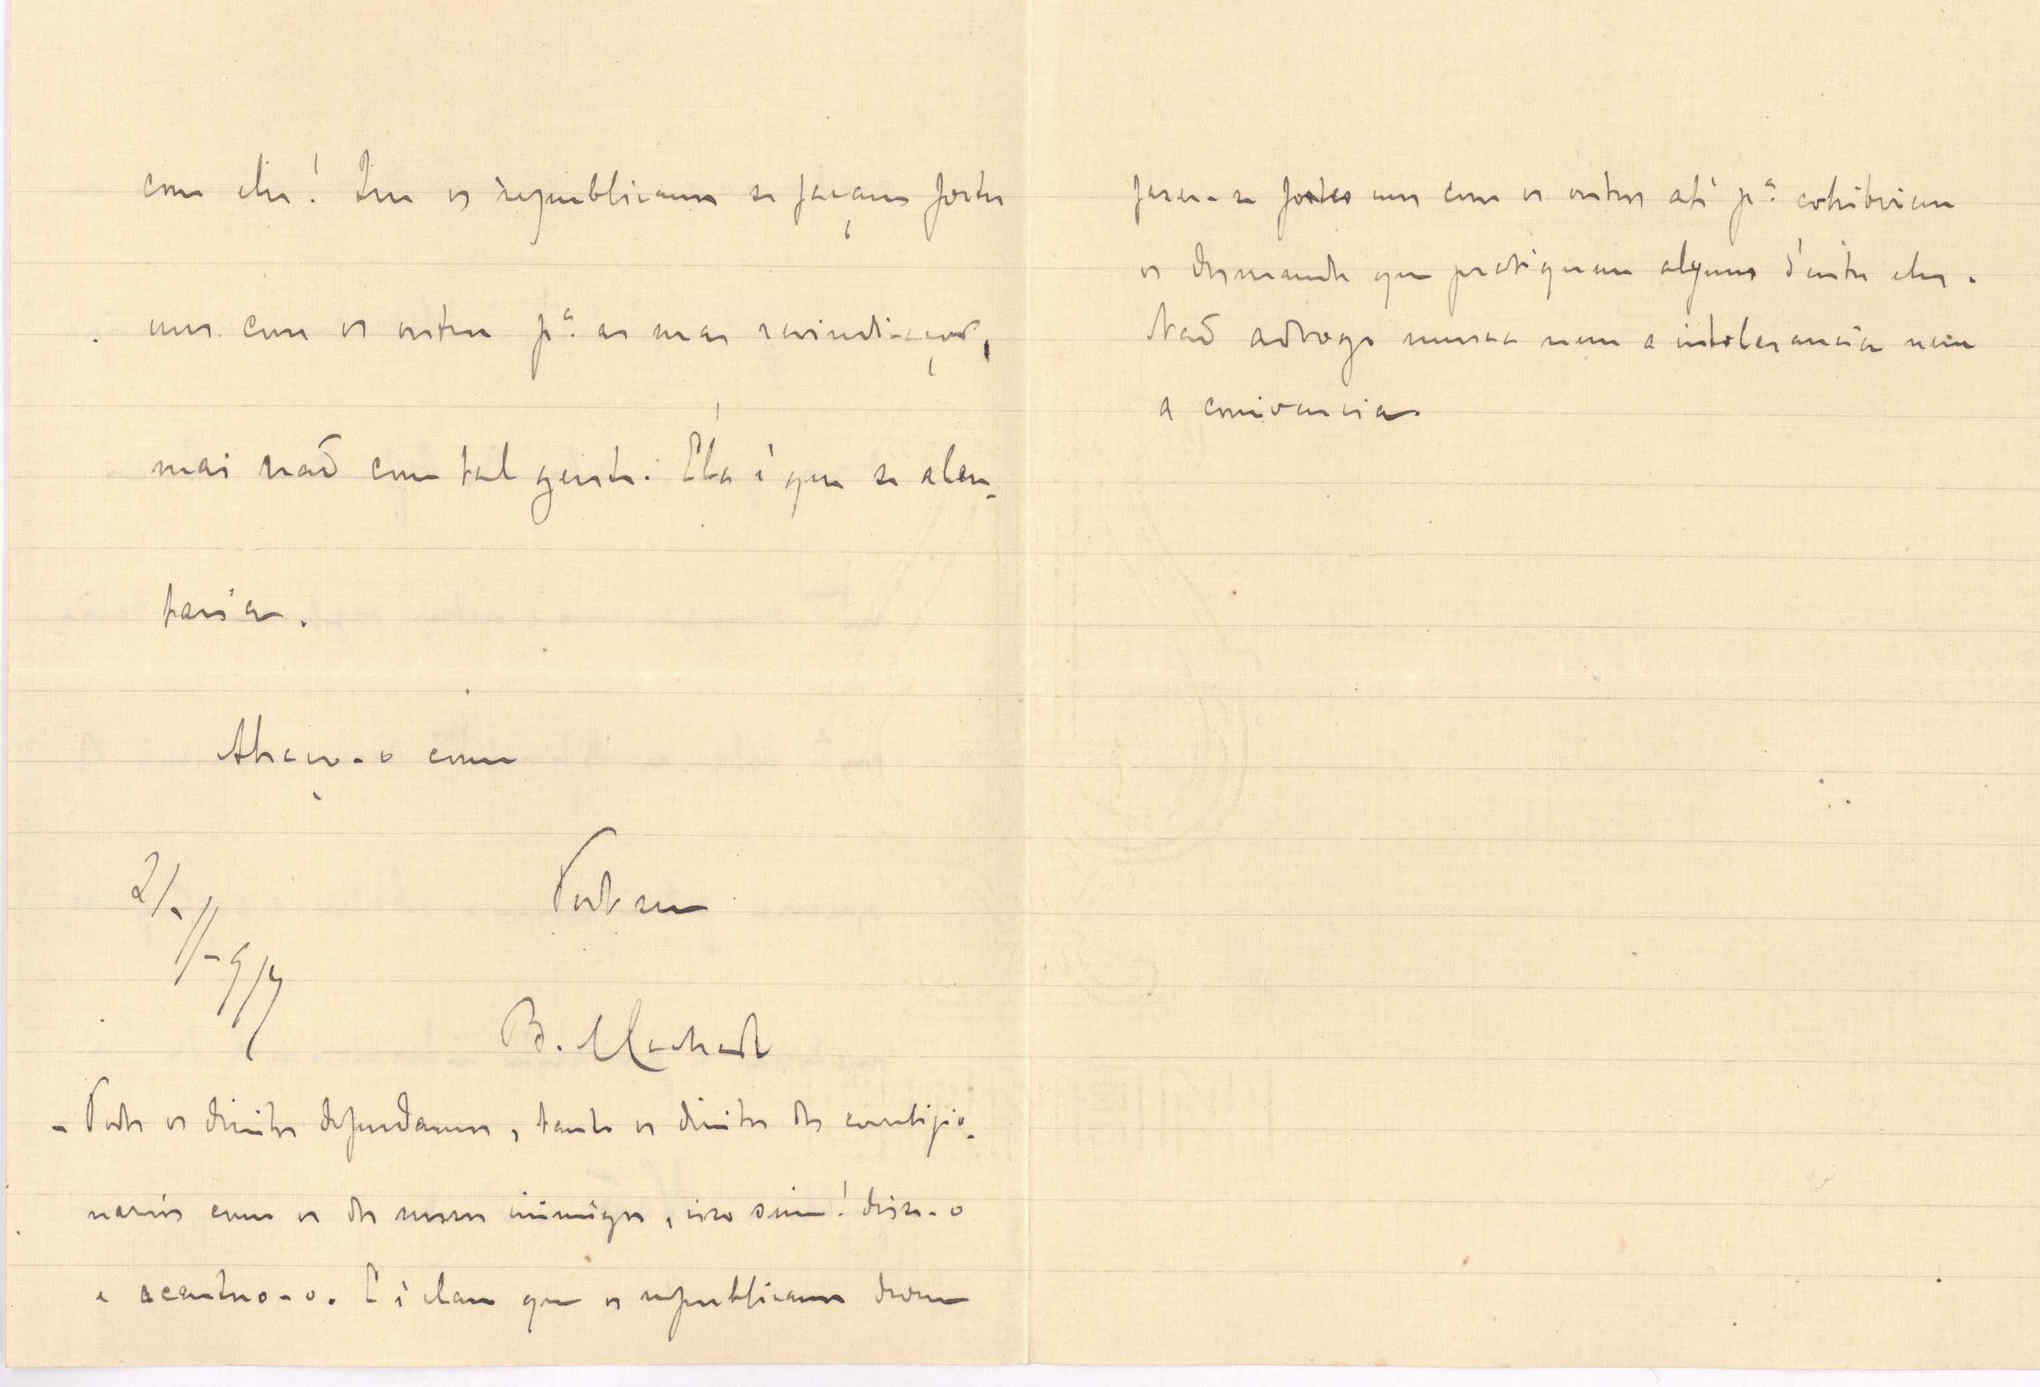 com eles! Que os republicanos se façam fortes
uns com os outros p.ª as suas reivindicações,
mas naõ com tal gente. Ella é que se alen-
taria.
Abraço-o como
Todo seu
21-11-917
B. Machado
- Todos os direitos defendamos, tanto os direitos dos correligio-
narios como os dos nossos inimigos, isso sim! disse-o
e accentuo-o. E é claro que os republicanos devem
fazer-se fortes uns com os outros até p.ª cohibirem
os desmandos que pratiquem alguns d'entre eles.
Naõ advogo nunca nem a intolerancia nem
a conivencia